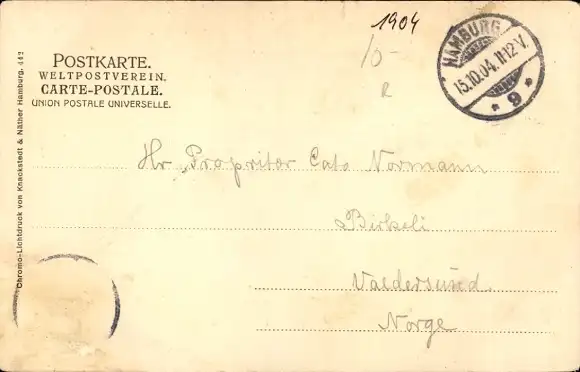 1904
10-
R
HAMBURG
15.10.04.11-12 V.
* 9 *
POSTKARTE.
WELTPOSTVEREIN.
CARTE-POSTALE.
UNION POSTALE UNIVERSELLE.
Chromo-Lichtdruck von Knackstedt & Näther Hamburg. 442
Hr Propritær Cato Normann
Birkeli
Valdersund
Norge